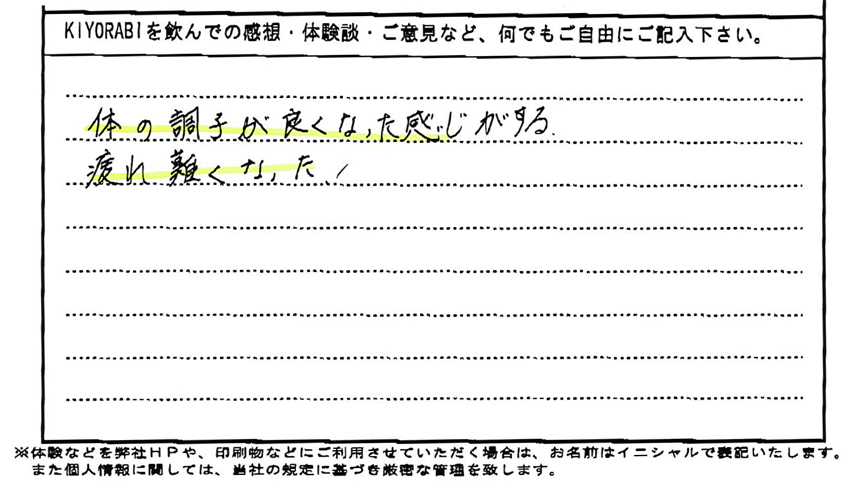 KIYORABIを飲んでの感想・体験談・ご意見など、何でもご自由にご記入下さい。
体の調子が良くなった感じがする.
疲れ難くなった.
※体験などを弊社HPや、印刷物などにご利用させていただく場合は、お名前はイニシャルで表記いたします。
また個人情報に関しては、当社の規定に基づき厳密な管理を致します。